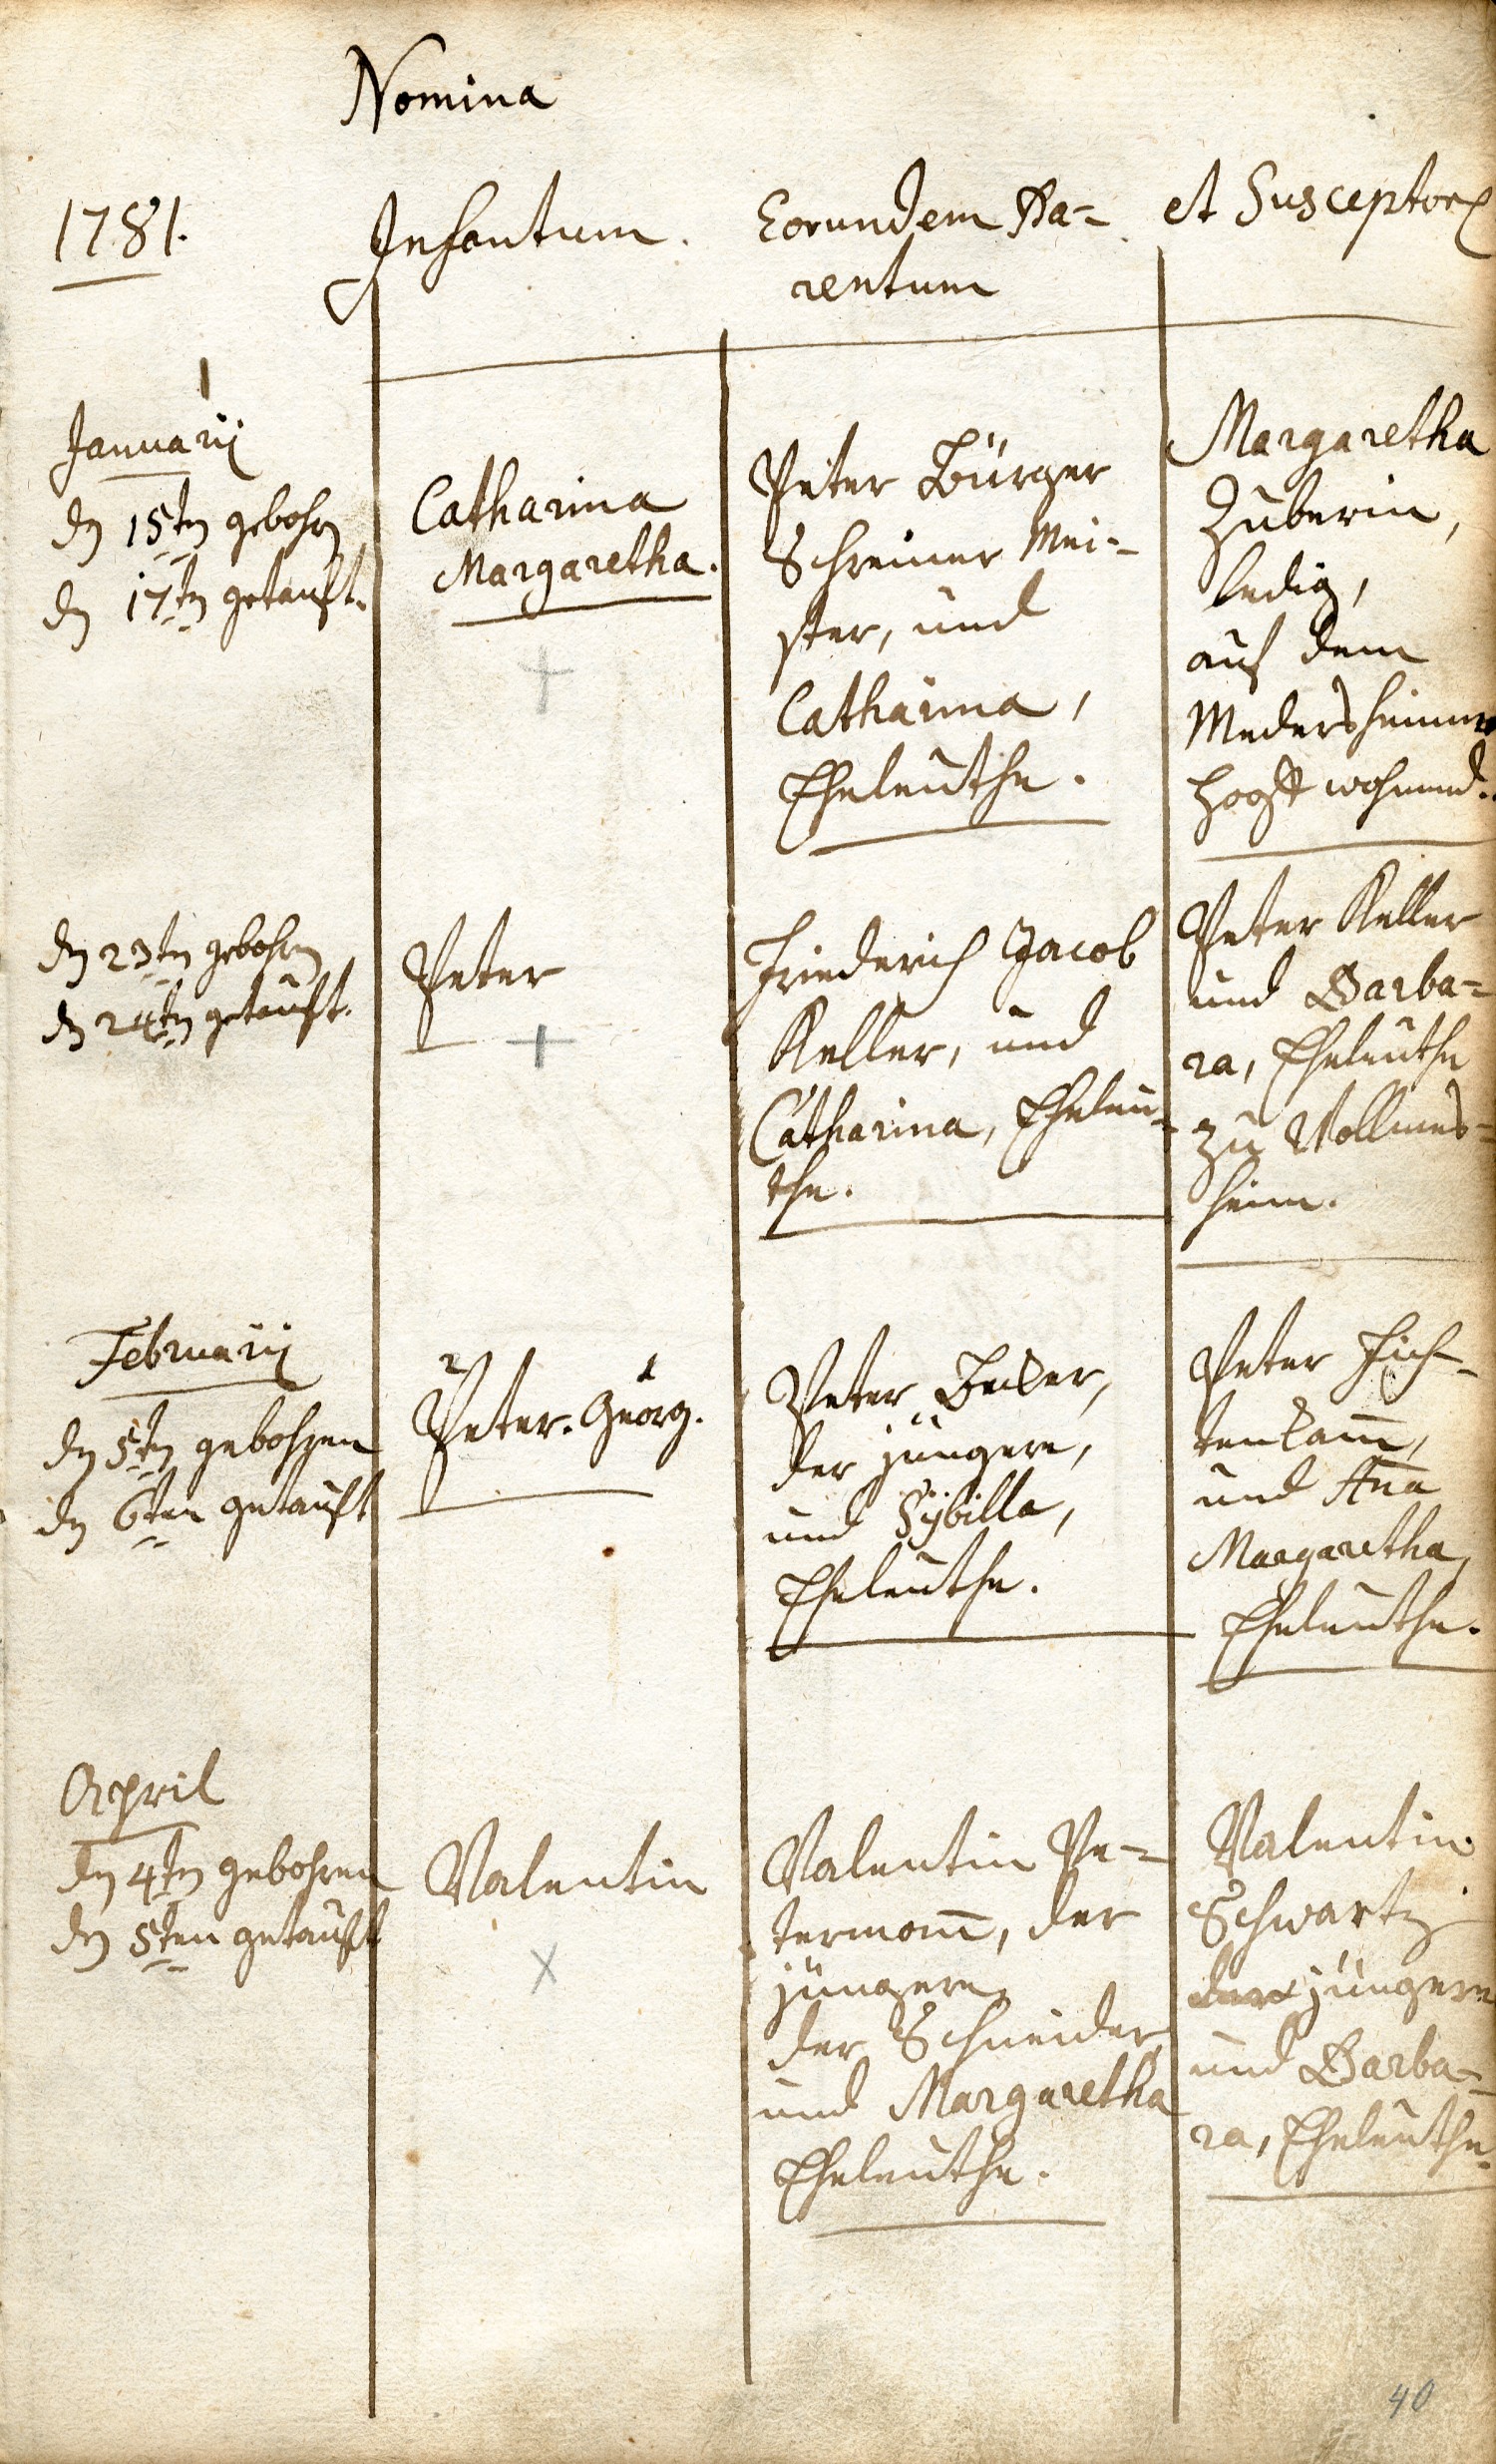 Nomina
1781. Infantum. Eorundem Pa= et Susceptor
rentum
Januarij
dn 15tn gebohrn
dn 17tn getauft.
Catharina
Margaretha.
Peter Bürger
Schreiner Mei=
ster, und
Catharina,
Eheleuthe.
Margaretha
Zuberin,
ledig,
auf dem
Medersheimer
Hooff wohnend.
dn 23tn gebohrn
dn 24tn getauft.
Peter
Friederich Jacob
Keller, und
Catharina, Eheleu=
the.
Peter Keller
und Barba=
ra, Eheleuthe
zu Vollmes=
heim.
Februarij
dn 5tn gebohren
dn 6ten getauft
2 1
Peter. Georg.
Peter Becker,
der jüngere,
und Sybilla,
Eheleuthe.
Peter Fich=
tenkam̄,
und An̄a
Margaretha,
Eheleuthe.
April
dn 4tn gebohren
dn 5ten getauft
Valentin
Valentin Pe=
terman̄, der
jüngere
der Schneider
und Margaretha
Eheleuthe.
Valentin
Schwartz
der jüngere
und Barba=
ra, Eheleuthe.
40